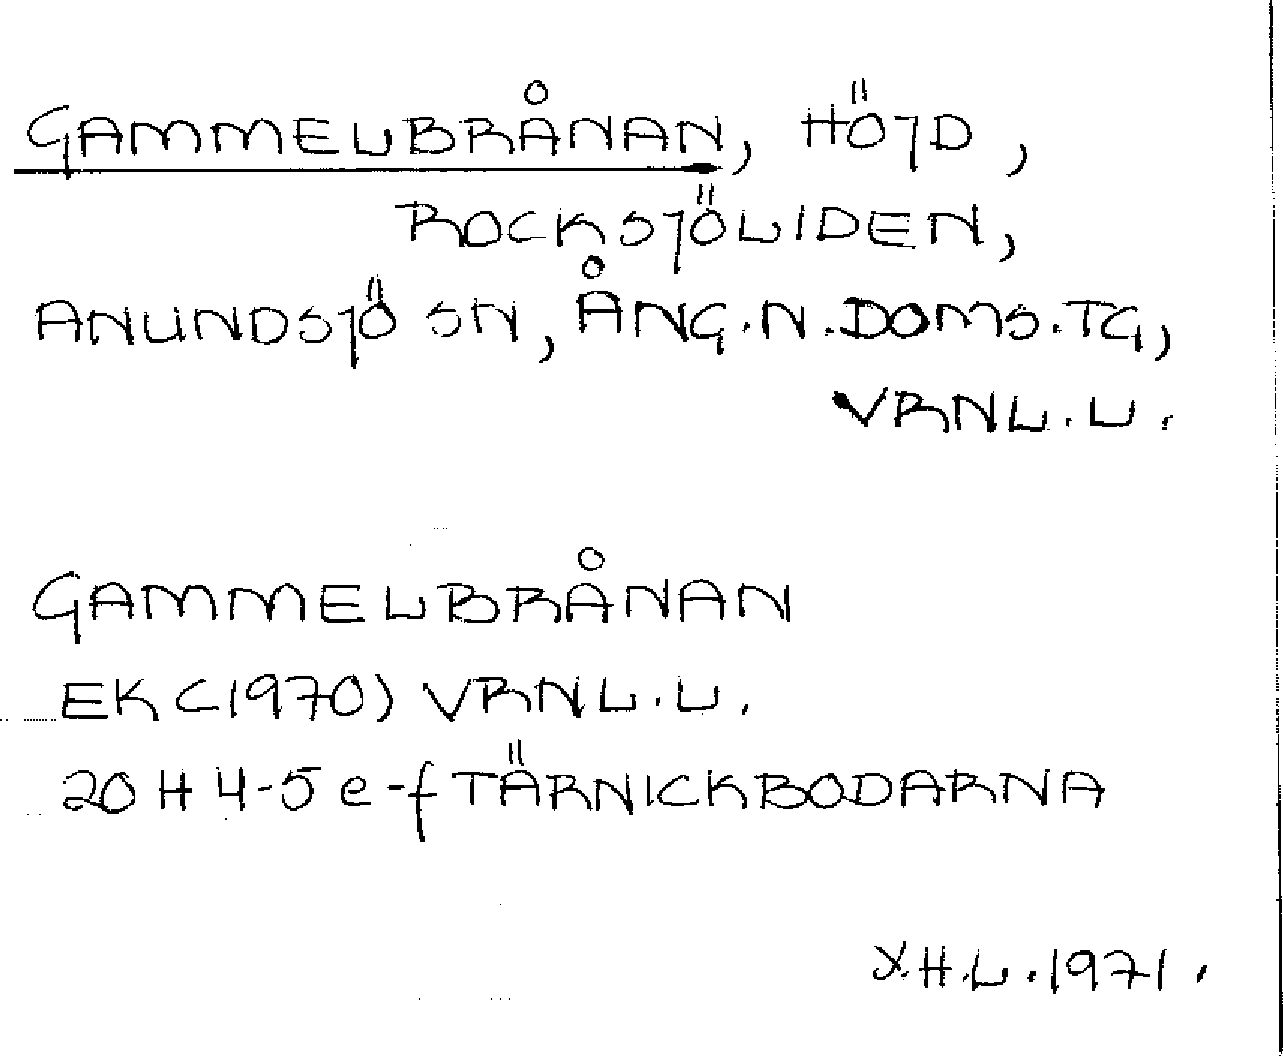 GAMMELBRÅNAN, HÖJD,
ROCKSJÖLIDEN,
ANUNDSJÖ SN, ÅNG.N.DOMS.TG,
VRNL.L.
GAMMELBRÅNAN
EK (1970) VRNL.L.
20 H 4-5 e-f TÄRNICKBODARNA
X.H.L.1971.